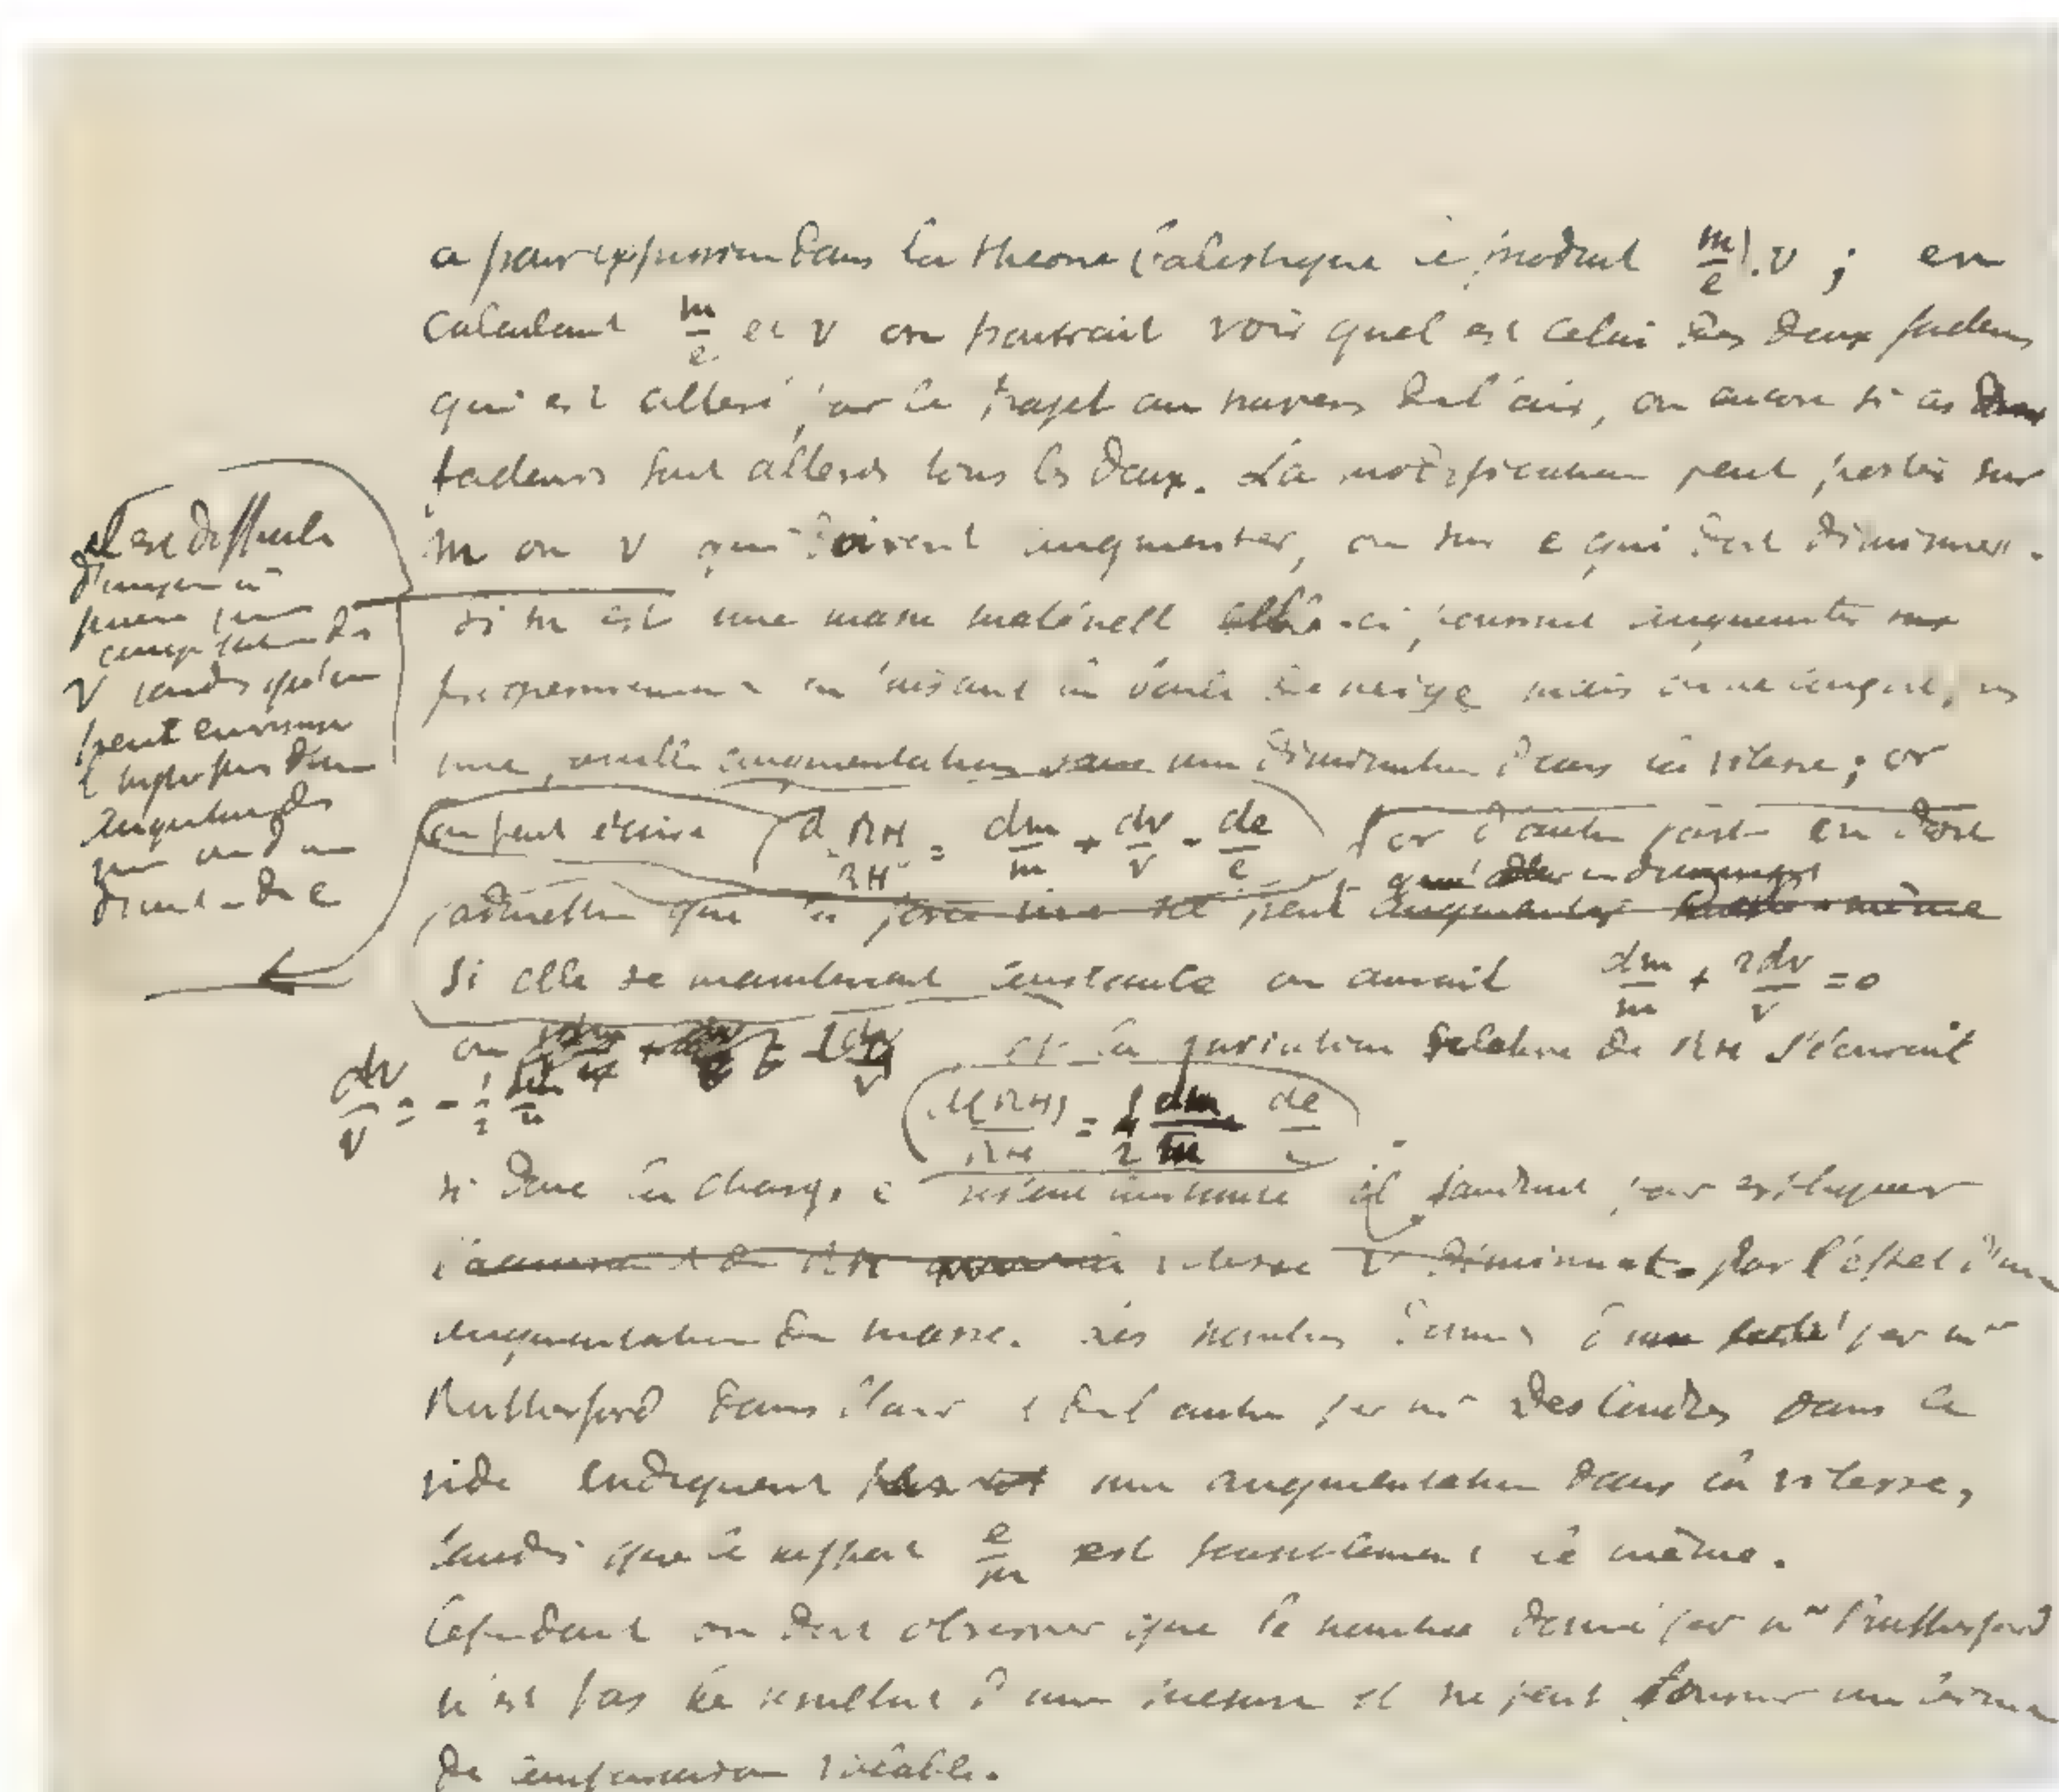 a pour expression dans la theorie balistique le produit m/e . v ; en
calculant m/e et v on pourrait voir quel est celui des deux facteurs
qui est altéré par le trajet au travers de l'air, ou encore si ces deux
facteurs sont altérés tous les deux. La modification peut porter sur
m ou v qui doivent augmenter, ou sur e qui doit diminuer.
Il est difficile
d'imaginer
une
augmentation de
V tandis qu'on
peut envisager
l'hypothèse d'une
augmentation de
m ou d'une
diminution de e
Si m est une masse matérielle celle-ci pourrait augmenter
progressivement en faisant la boule de neige mais
une pareille augmentation une diminution dans la vitesse ; or
on peut écrire d RH / RH = dm/m + dv/v - de/e or d'autre part on doit
admettre que la force vive ne peut augmenter même
qu'en diminuant
si elle se maintenait constante on aurait dm/m + 2dv/v = 0
ou et la variation relative de RH s'écrirait
dv/v = - 1/2 dm/m
d(RH)/RH = 1/2 dm/m - de/e
si donc la charge e restait constante il faudrait pour expliquer
l'accroissement de RH que la vitesse v diminuat par l'effet d'une
augmentation de masse. Les nombres donnés d'une part par Mr
Rutherford dans l'air et de l'autre par Mr Des Coudres dans le
vide indiquent une augmentation dans la vitesse,
tandis que le rapport e/m est sensiblement le même.
Cependant on doit observer que le nombre donné par Mr Rutherford
n'est pas le resultat d'une mesure et ne peut fournir un terme
de comparaison